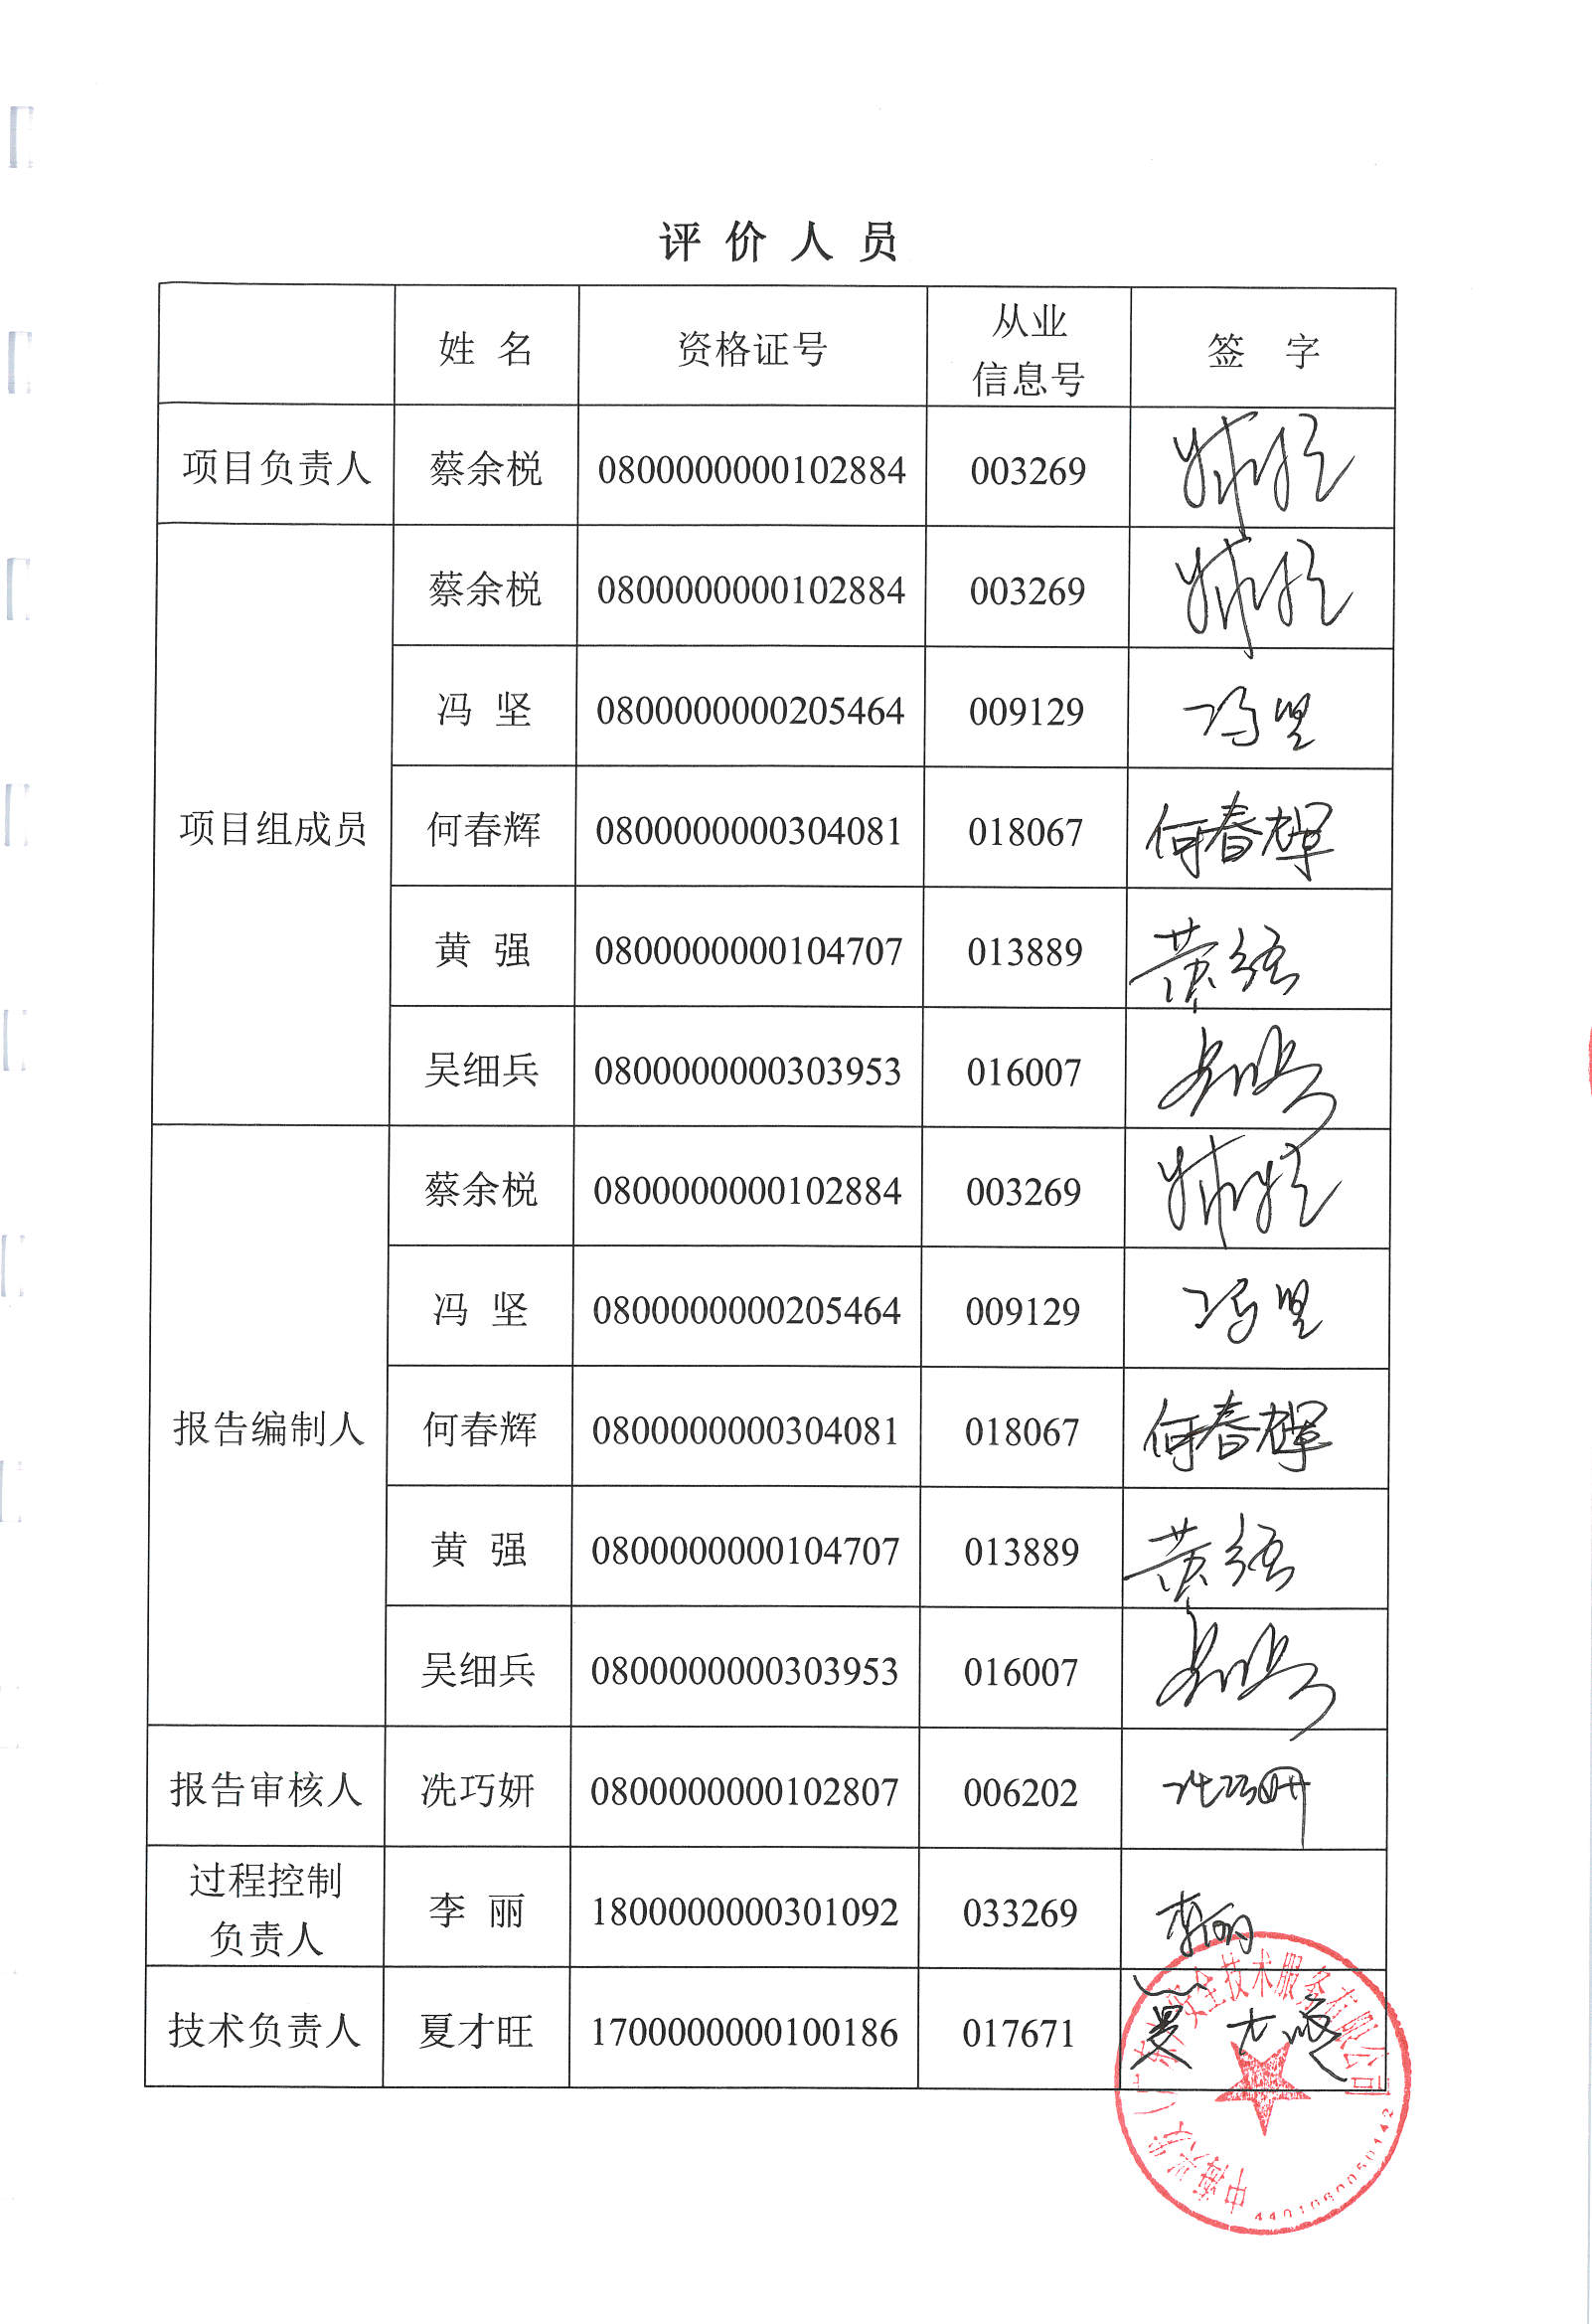 评价人员
姓名 资格证号 从业信息号 签字
项目负责人 蔡余棁 0800000000102884 003269
项目组成员 蔡余棁 0800000000102884 003269
冯坚 0800000000205464 009129 冯坚
何春辉 0800000000304081 018067 何春辉
黄强 0800000000104707 013889 黄强
吴细兵 0800000000303953 016007
报告编制人 蔡余棁 0800000000102884 003269
冯坚 0800000000205464 009129 冯坚
何春辉 0800000000304081 018067 何春辉
黄强 0800000000104707 013889 黄强
吴细兵 0800000000303953 016007
报告审核人 冼巧妍 0800000000102807 006202 冼巧妍
过程控制负责人 李丽 1800000000301092 033269 李丽
技术负责人 夏才旺 1700000000100186 017671 夏才旺
安全技术服务有限公司
4401060050142